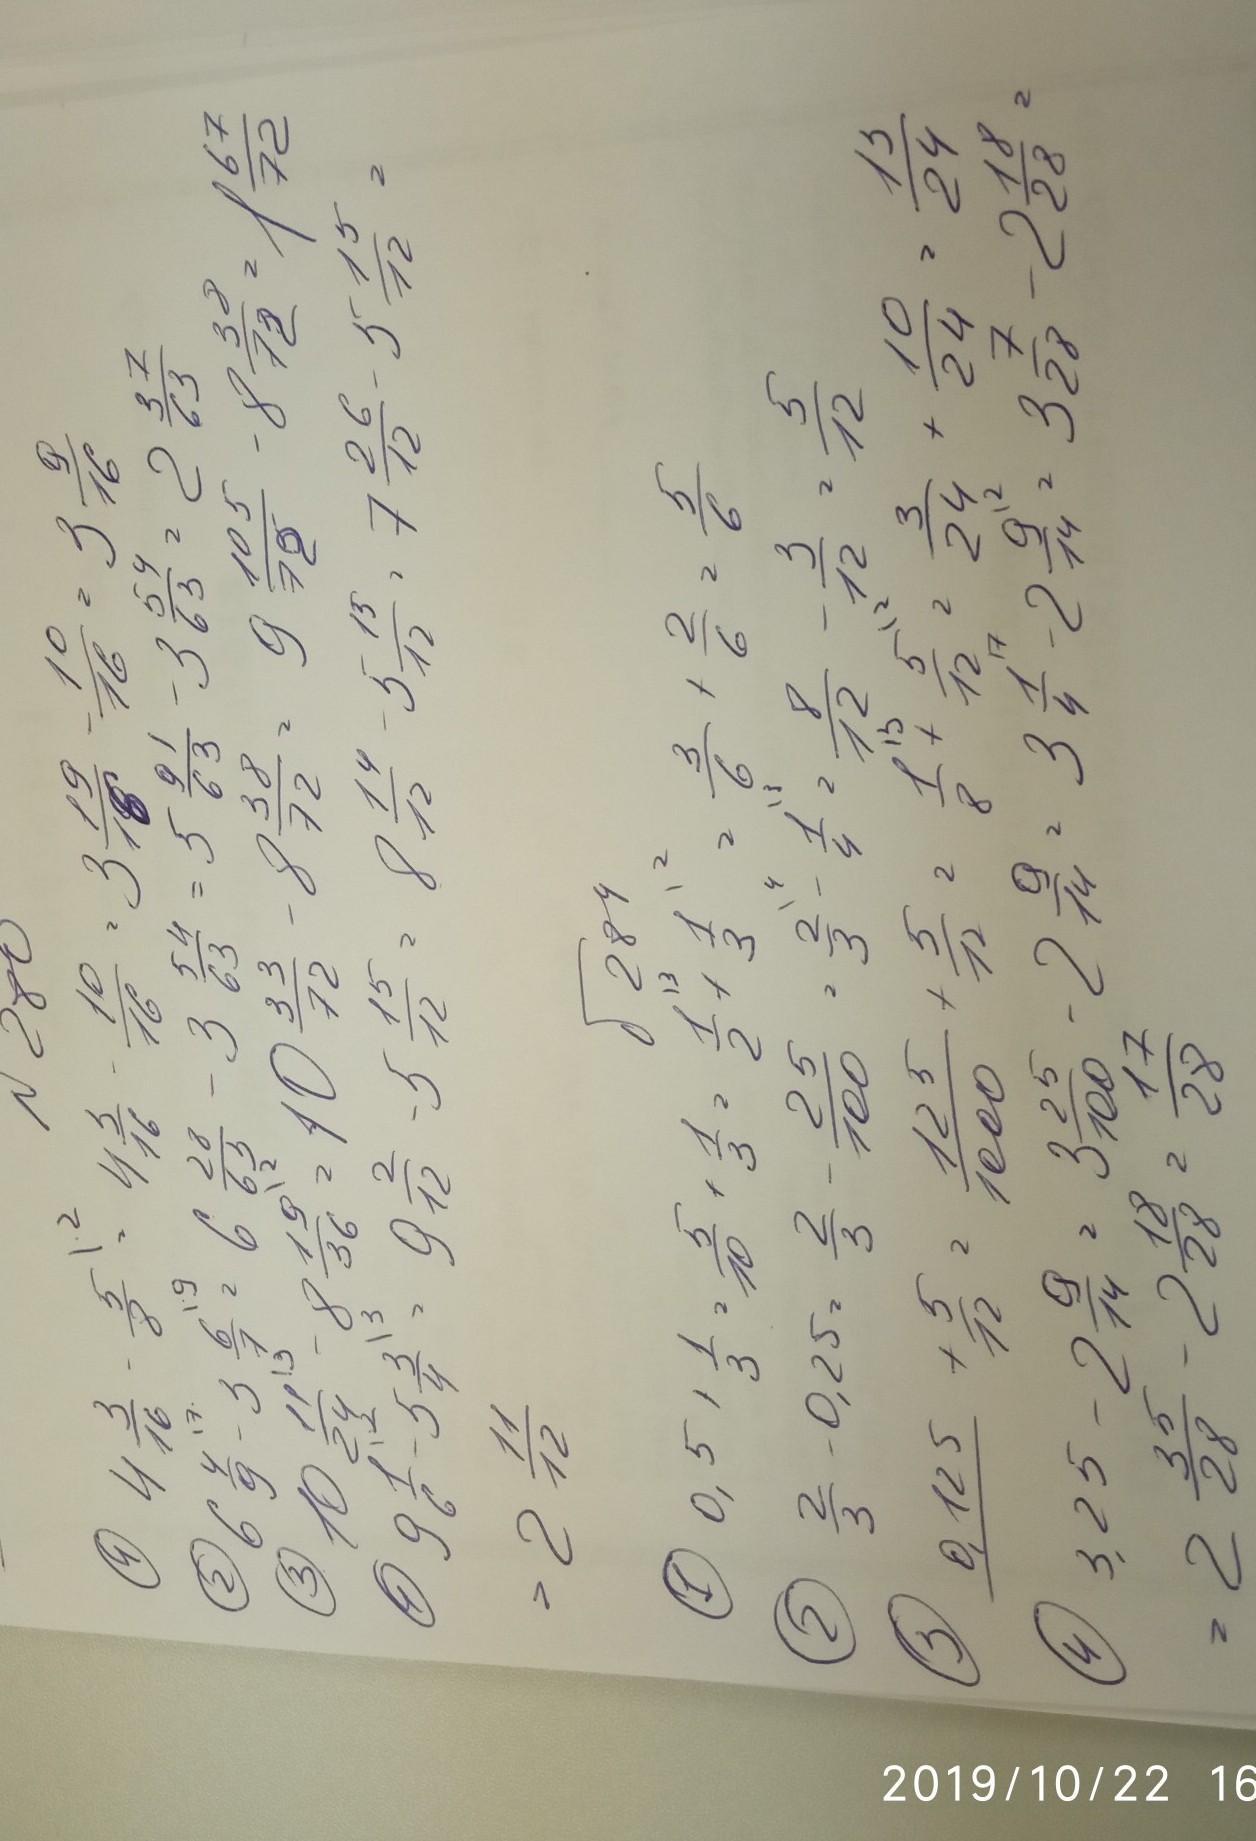 N 280
① 4 3/16 - 5/8 \2 = 4 3/16 - 10/16 = 3 19/16 - 10/16 = 3 9/16
② 6 4/9 \7 - 3 6/7 \9 = 6 28/63 - 3 54/63 = 5 91/63 - 3 54/63 = 2 37/63
③ 10 11/24 \3 - 8 19/36 \2 = 10 33/72 - 8 38/72 = 9 105/72 - 8 38/72 = 1 67/72
9 1/6 \2 - 5 3/4 \3 = 9 2/12 - 5 15/12 = 8 14/12 - 5 15/12 = 7 26/12 - 5 15/12 =
= 2 11/12
284
① 0,5 + 1/3 = 5/10 + 1/3 = 1/2 \3 + 1/3 \2 = 3/6 + 2/6 = 5/6
② 2/3 - 0,25 = 2/3 - 25/100 = 2/3 \4 - 1/4 \3 = 8/12 - 3/12 = 5/12
③ 0,125 + 5/12 = 125/1000 + 5/12 = 1/8 \3 + 5/12 \2 = 3/24 + 10/24 = 13/24
④ 3,25 - 2 9/14 = 3 25/100 - 2 9/14 = 3 1/4 \7 - 2 9/14 \2 = 3 7/28 - 2 18/28 =
= 2 35/28 - 2 18/28 = 17/28
2019/10/22 16